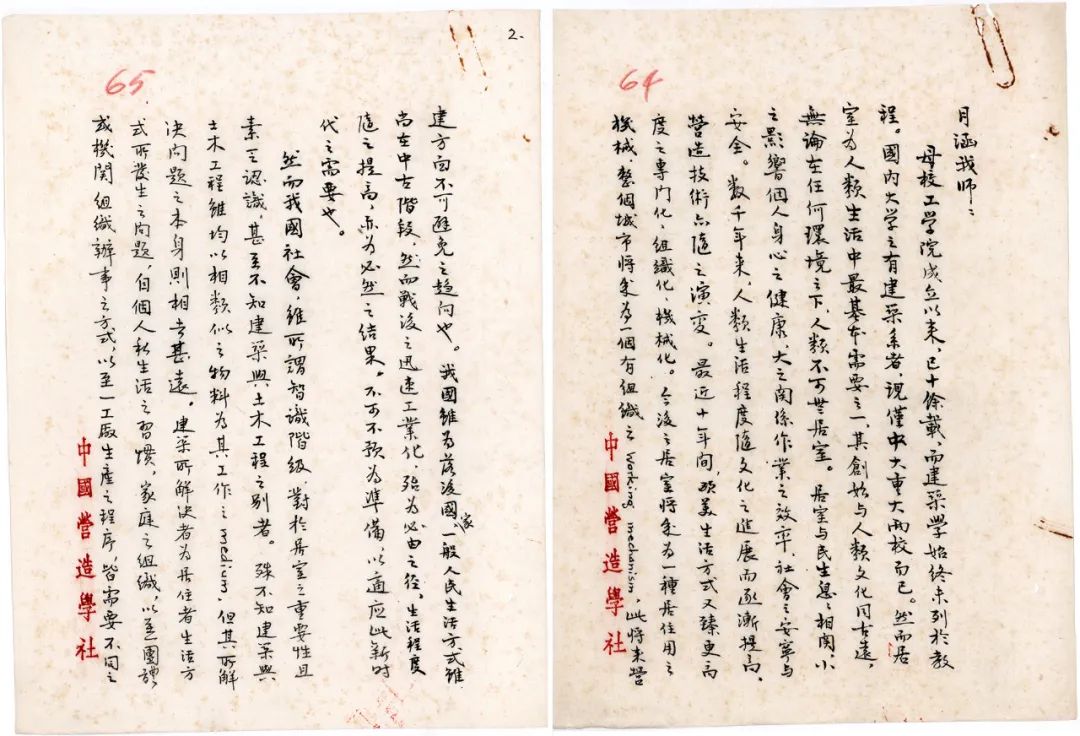 64
月涵我師:
母校工学院成立以来，已十餘載，而建築学始終未列於教
程。國内大学之有建築系者，現僅中大重大两校而已。然而居
室为人類生活中最基本需要之一，其創始与人類文化同古遠，
無論在任何環境之下，人類不可無居室。居室与民生息息相関，小
之影響個人身心之健康，大之関係作業之效率，社會之安寧与
安全。数千年来，人類生活程度隨文化之進展而逐漸提高，
營造技術亦隨之演变。最近十年間，欧美生活方式又臻更高
度之專門化，組織化，機械化。今後之居室將成为一種居住用之
機械，整個城市將成为一個有組織之 Working mechanism，此將来營
中國營造學社
2.
65
建方面不可避免之趨向也。我國雖为落後國家，一般人民生活方式雖
尚在中古階段，然而戰後之迅速工業化，殆为必由之径，生活程度
隨之提高，亦为必然之结果，不可不预为準備，以適应此新时
代之需要也。
然而我國社會，雖所謂智識階級，對於居室之重要性且
素乏認識，甚至不知建築與土木工程之别者。殊不知建築與
土木工程雖均以相類似之物料为其工作之 medium，但其所解
决问题之本身則相去甚遠。建築所解决者为居住者生活方
式所發生之问題，自個人私生活之習慣，家庭之组織，以至團體
或機関组織辦事之方式，以至一工厰生產之程序，皆需要不同之
中國營造學社